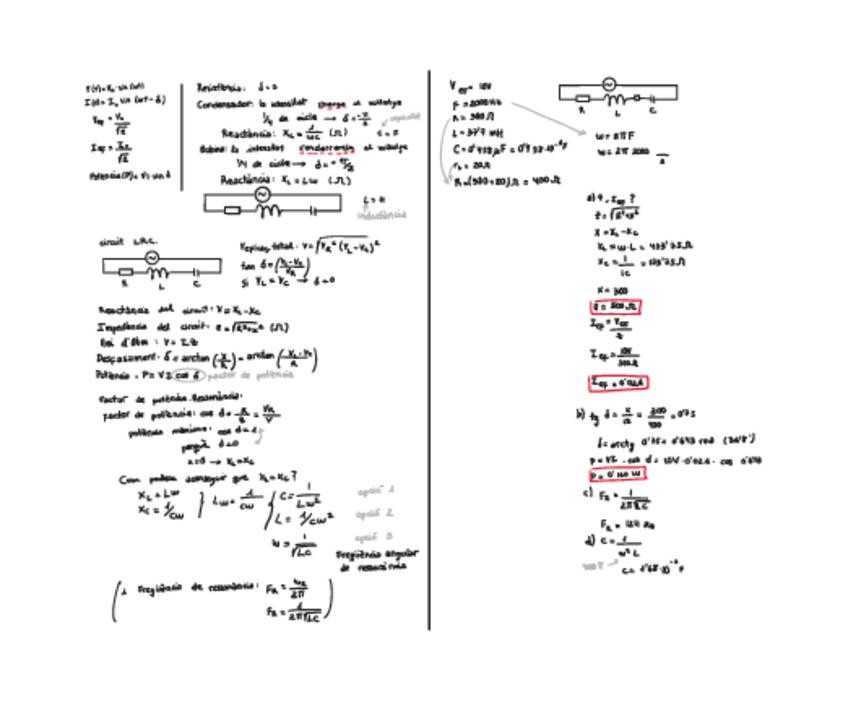 V(t)=V₀·sin(ωt)
I(t)=I₀ sin(ωt-δ)
V_ef = V₀/√2
I_ef = I₀/√2
Potencia(P)=V·I·cosδ
Resistència: δ=0
Condensador: la intensitat al voltatge
1/4 de cicle → δ=-π/2
Reactància: X_C = 1/ωC (Ω)
Bobina: la intensitat al voltatge
1/4 de cicle → δ=+π/2
Reactància: X_L = Lω (Ω)
L = H
inductància
circuit L.R.C.
R L C
V total: V=√(V_R²+(V_L-V_C)²)
tan δ=(V_L-V_C/V_R)
Si V_L=V_C → δ=0
Reactància del circuit: X=X_L-X_C
Impedància del circuit: Z=√(R²+X²) (Ω)
Llei d'Ohm: V=I.Z
Desfasament: δ=arctan(X/R)=arctan(X_L-X_C/R)
Potència: P=V I cos δ factor de potència
Factor de potència. Ressonància:
Factor de potència: cos δ=R/Z=V_R/V
potència màxima: cos δ=1
perquè δ=0
X=0 → X_L=X_C
Com podem aconseguir que X_L=X_C?
X_L=Lω
X_C=1/Cω
Lω=1/Cω
C=1/Lω² opció 1
L=1/Cω² opció 2
ω=1/√LC opció 3
Freqüència angular
de ressonància
Freqüència de ressonància: F_R=ω_R/2π
F_R=1/2π√LC
V_ef=10V
F=2000Hz
R=380Ω
C=0'433µF
r_L=20Ω
R=(380+20)Ω=400Ω
R L C
ω=2πF
ω=2π 2000
a) Z, I_ef?
Z=√(R²+X²)
X=X_L-X_C
X_L=ω·L=
X_C=1/
X=300
Z=500Ω
I_ef=V_ef/Z
I_ef=10V/500Ω
I_ef=0'02A
b) tg δ=X/R=300/400=0'75
δ=arctg 0'75=0'643 rad
P=VI·cos δ=10V·0'02A·cos 0'643
P=0'160 W
c) F_R=1/2π√LC
d) C=1/ω²L